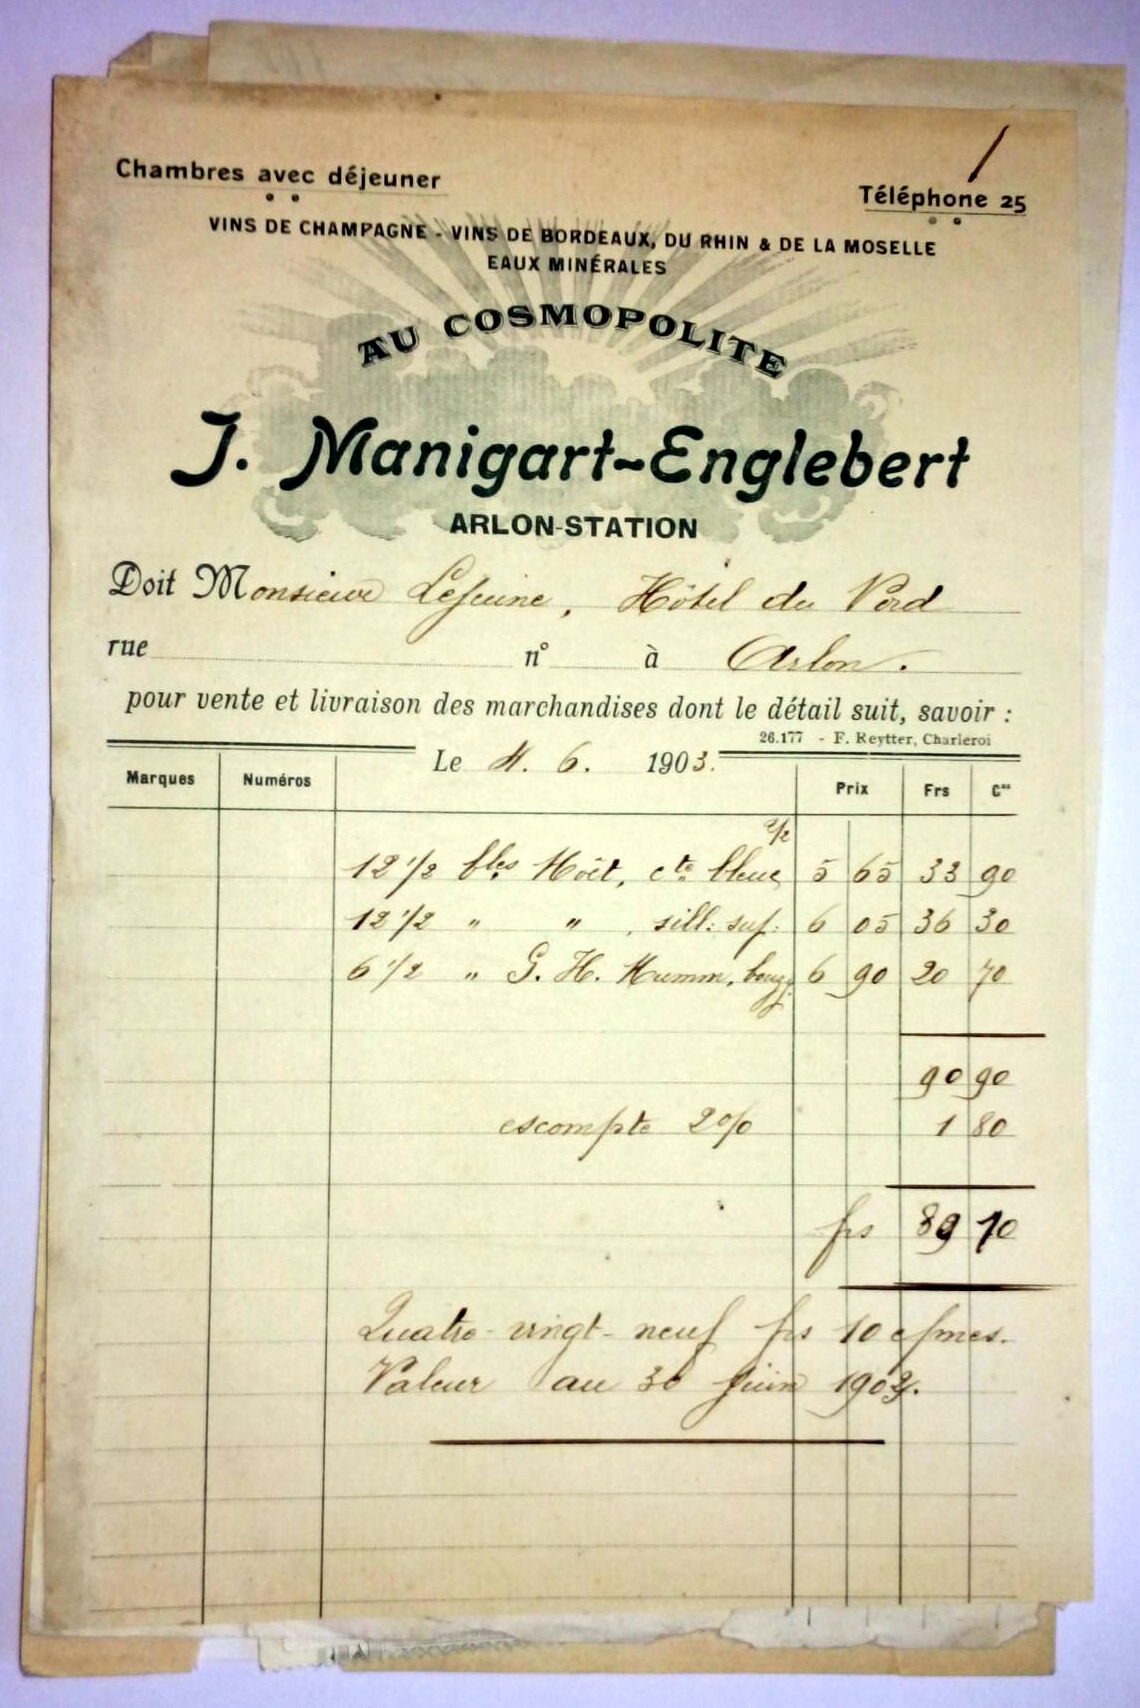 /
Chambres avec déjeuner
Téléphone 25
VINS DE CHAMPAGNE - VINS DE BORDEAUX, DU RHIN & DE LA MOSELLE
EAUX MINÉRALES
AU COSMOPOLITE
J. Manigart-Englebert
ARLON-STATION
Doit Monsieur Lejeune, Hôtel du Nord
rue n° à Arlon.
pour vente et livraison des marchandises dont le détail suit, savoir :
26.177 - F. Reytter, Charleroi
Le 4. 6. 1903.
Marques Numéros Prix Frs Cmes
12 1/2 bles Moët, cte bleue 5 65 33 90
12 1/2 " " , sill: sup: 6 05 36 30
6 1/2 " G. H. Mumm, bouzy: 6 90 20 70
90 90
escompte 2% 1 80
frs 89 10
Quatre-vingt-neuf frs 10 cmes.
Valeur au 30 juin 1903.